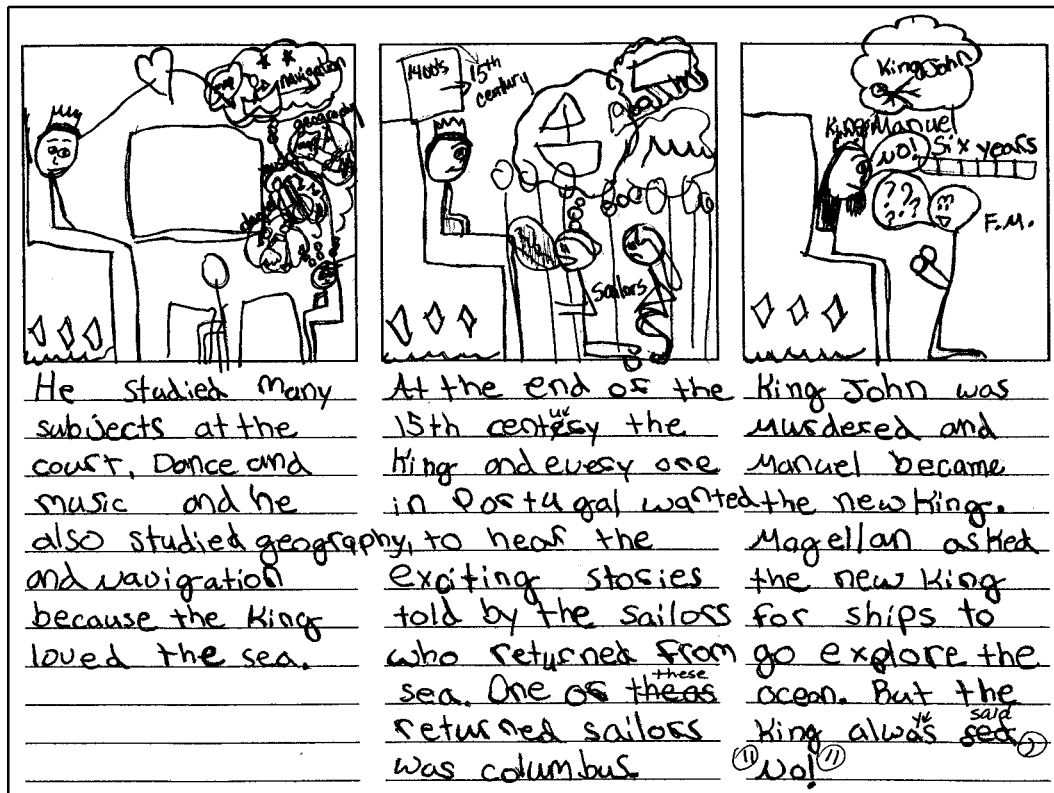 navigation
geography
music
dance
He studied many
subjects at the
court, Dance and
music and he
also studied geography,
and navigation
because the King
loved the sea.
1400's
15th
century
sailors
At the end of the
15th century the
King and every one
in Portugal wanted
to hear the
exciting stories
told by the sailors
who returned from
sea. One of these
returned sailors
was columbus
King John
King Manuel
NO!
Six years
????
F.M.
King John was
murdered and
Manuel became
the new King.
Magellan asked
the new King
for ships to
go explore the
ocean. But the
King always said,
"No!"